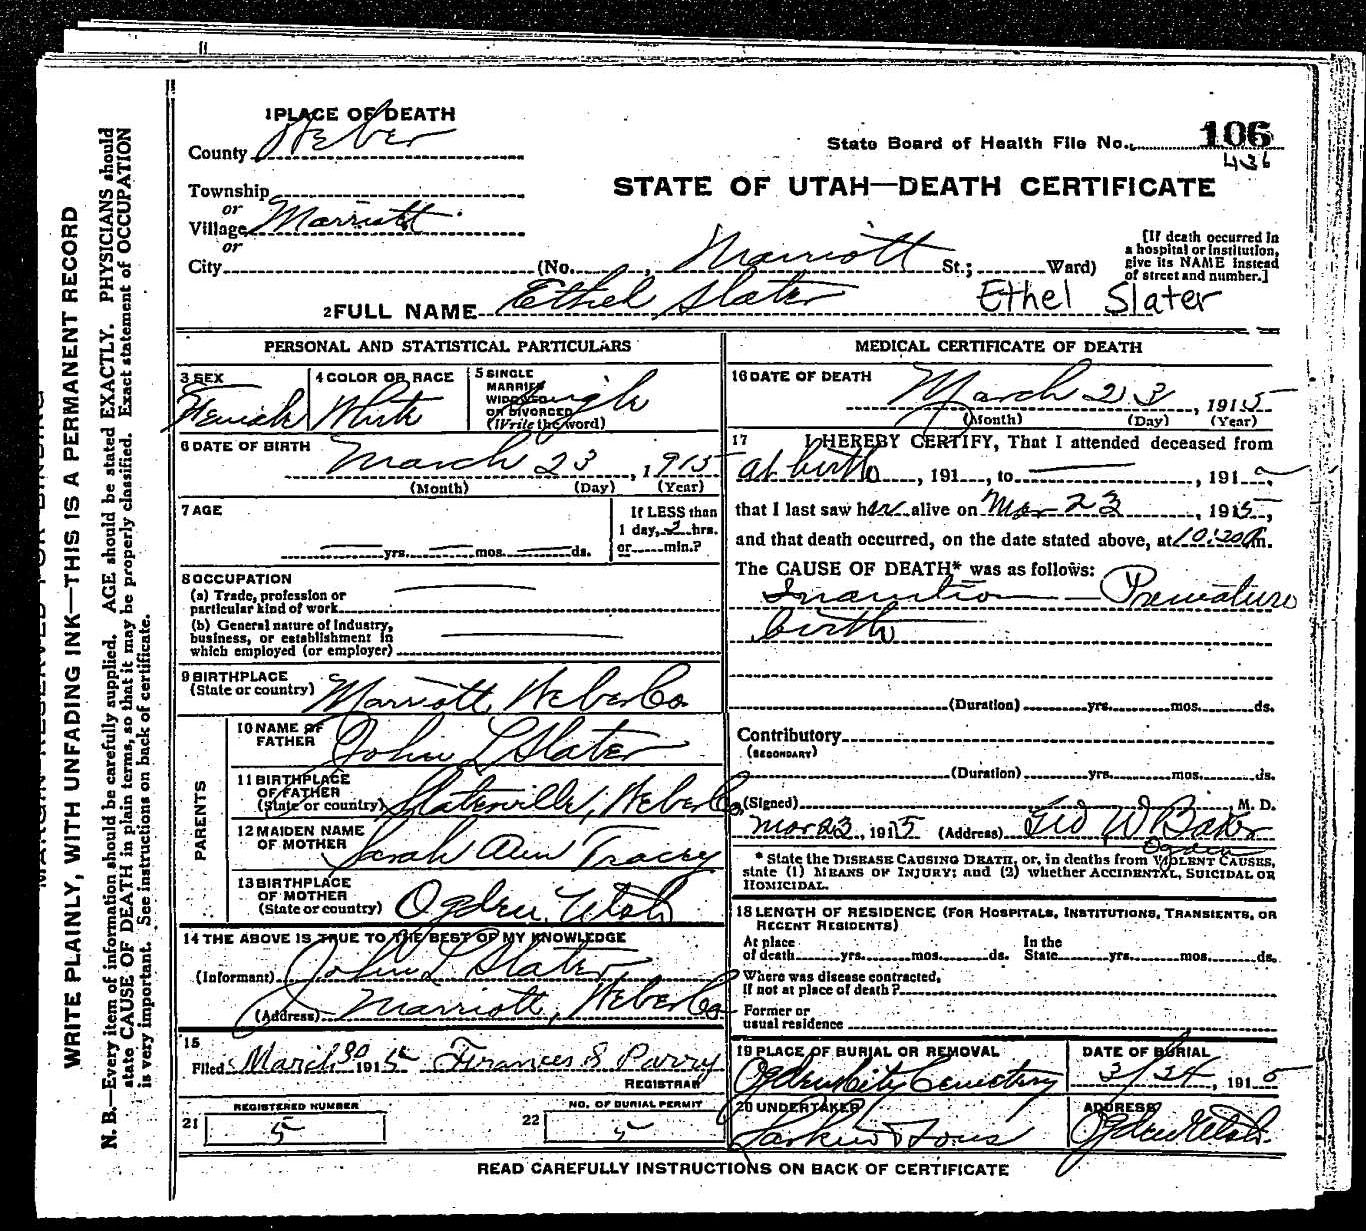 1 PLACE OF DEATH
County Weber
State Board of Health File No. 106
436
Township
or
Village Marriott
or
STATE OF UTAH—DEATH CERTIFICATE
City (No. , Marriott St.; Ward)
[If death occurred in
a hospital or institution,
give its NAME instead
of street and number.]
2 FULL NAME Ethel Slater Ethel Slater
PERSONAL AND STATISTICAL PARTICULARS
3 SEX
Female
4 COLOR OR RACE
White
5 SINGLE
MARRIED
WIDOWED
OR DIVORCED
(Write the word)
Single
6 DATE OF BIRTH
March 23, 1915
(Month) (Day) (Year)
7 AGE
yrs. mos. ds.
If LESS than
1 day, 2 hrs.
or min.?
8 OCCUPATION
(a) Trade, profession or
particular kind of work
(b) General nature of Industry,
business, or establishment in
which employed (or employer)
9 BIRTHPLACE
(State or country)
Marriott, Weber Co.
PARENTS
10 NAME OF
FATHER
John L Slater
11 BIRTHPLACE
OF FATHER
(State or country)
Slaterville, Weber Co.
12 MAIDEN NAME
OF MOTHER
Sarah Ann Tracey
13 BIRTHPLACE
OF MOTHER
(State or country)
Ogden, Utah
14 THE ABOVE IS TRUE TO THE BEST OF MY KNOWLEDGE
(Informant) John L Slater
(Address) Marriott, Weber Co
15
Filed March 30 1915 Frances S Parry
REGISTRAR
21 REGISTERED NUMBER
5
22 NO. OF BURIAL PERMIT
5
MEDICAL CERTIFICATE OF DEATH
16 DATE OF DEATH
March 23, 1915
(Month) (Day) (Year)
17 I HEREBY CERTIFY, That I attended deceased from
at birth, 191 , to , 191
that I last saw her alive on Mar 23, 1915,
and that death occurred, on the date stated above, at 10:20 m.
The CAUSE OF DEATH* was as follows:
Inanition — Premature
birth
(Duration) yrs. mos. ds.
Contributory
(SECONDARY)
(Duration) yrs. mos. ds.
(Signed) Geo W Baker M. D.
Mar 23, 1915 (Address) Ogden
* State the DISEASE CAUSING DEATH, or, in deaths from VIOLENT CAUSES,
state (1) MEANS OF INJURY; and (2) whether ACCIDENTAL, SUICIDAL OR
HOMICIDAL.
18 LENGTH OF RESIDENCE (FOR HOSPITALS, INSTITUTIONS, TRANSIENTS, OR
RECENT RESIDENTS)
At place
of death yrs. mos. ds.
In the
State yrs. mos. ds.
Where was disease contracted,
If not at place of death?
Former or
usual residence
19 PLACE OF BURIAL OR REMOVAL
Ogden City Cemetery
DATE OF BURIAL
3/24, 1915
20 UNDERTAKER
Larkin & Sons
ADDRESS
Ogden Utah.
READ CAREFULLY INSTRUCTIONS ON BACK OF CERTIFICATE
MARGIN RESERVED FOR BINDING
WRITE PLAINLY, WITH UNFADING INK—THIS IS A PERMANENT RECORD
N. B.—Every item of information should be carefully supplied. AGE should be stated EXACTLY. PHYSICIANS should
state CAUSE OF DEATH in plain terms, so that it may be properly classified. Exact statement of OCCUPATION
is very important. See instructions on back of certificate.